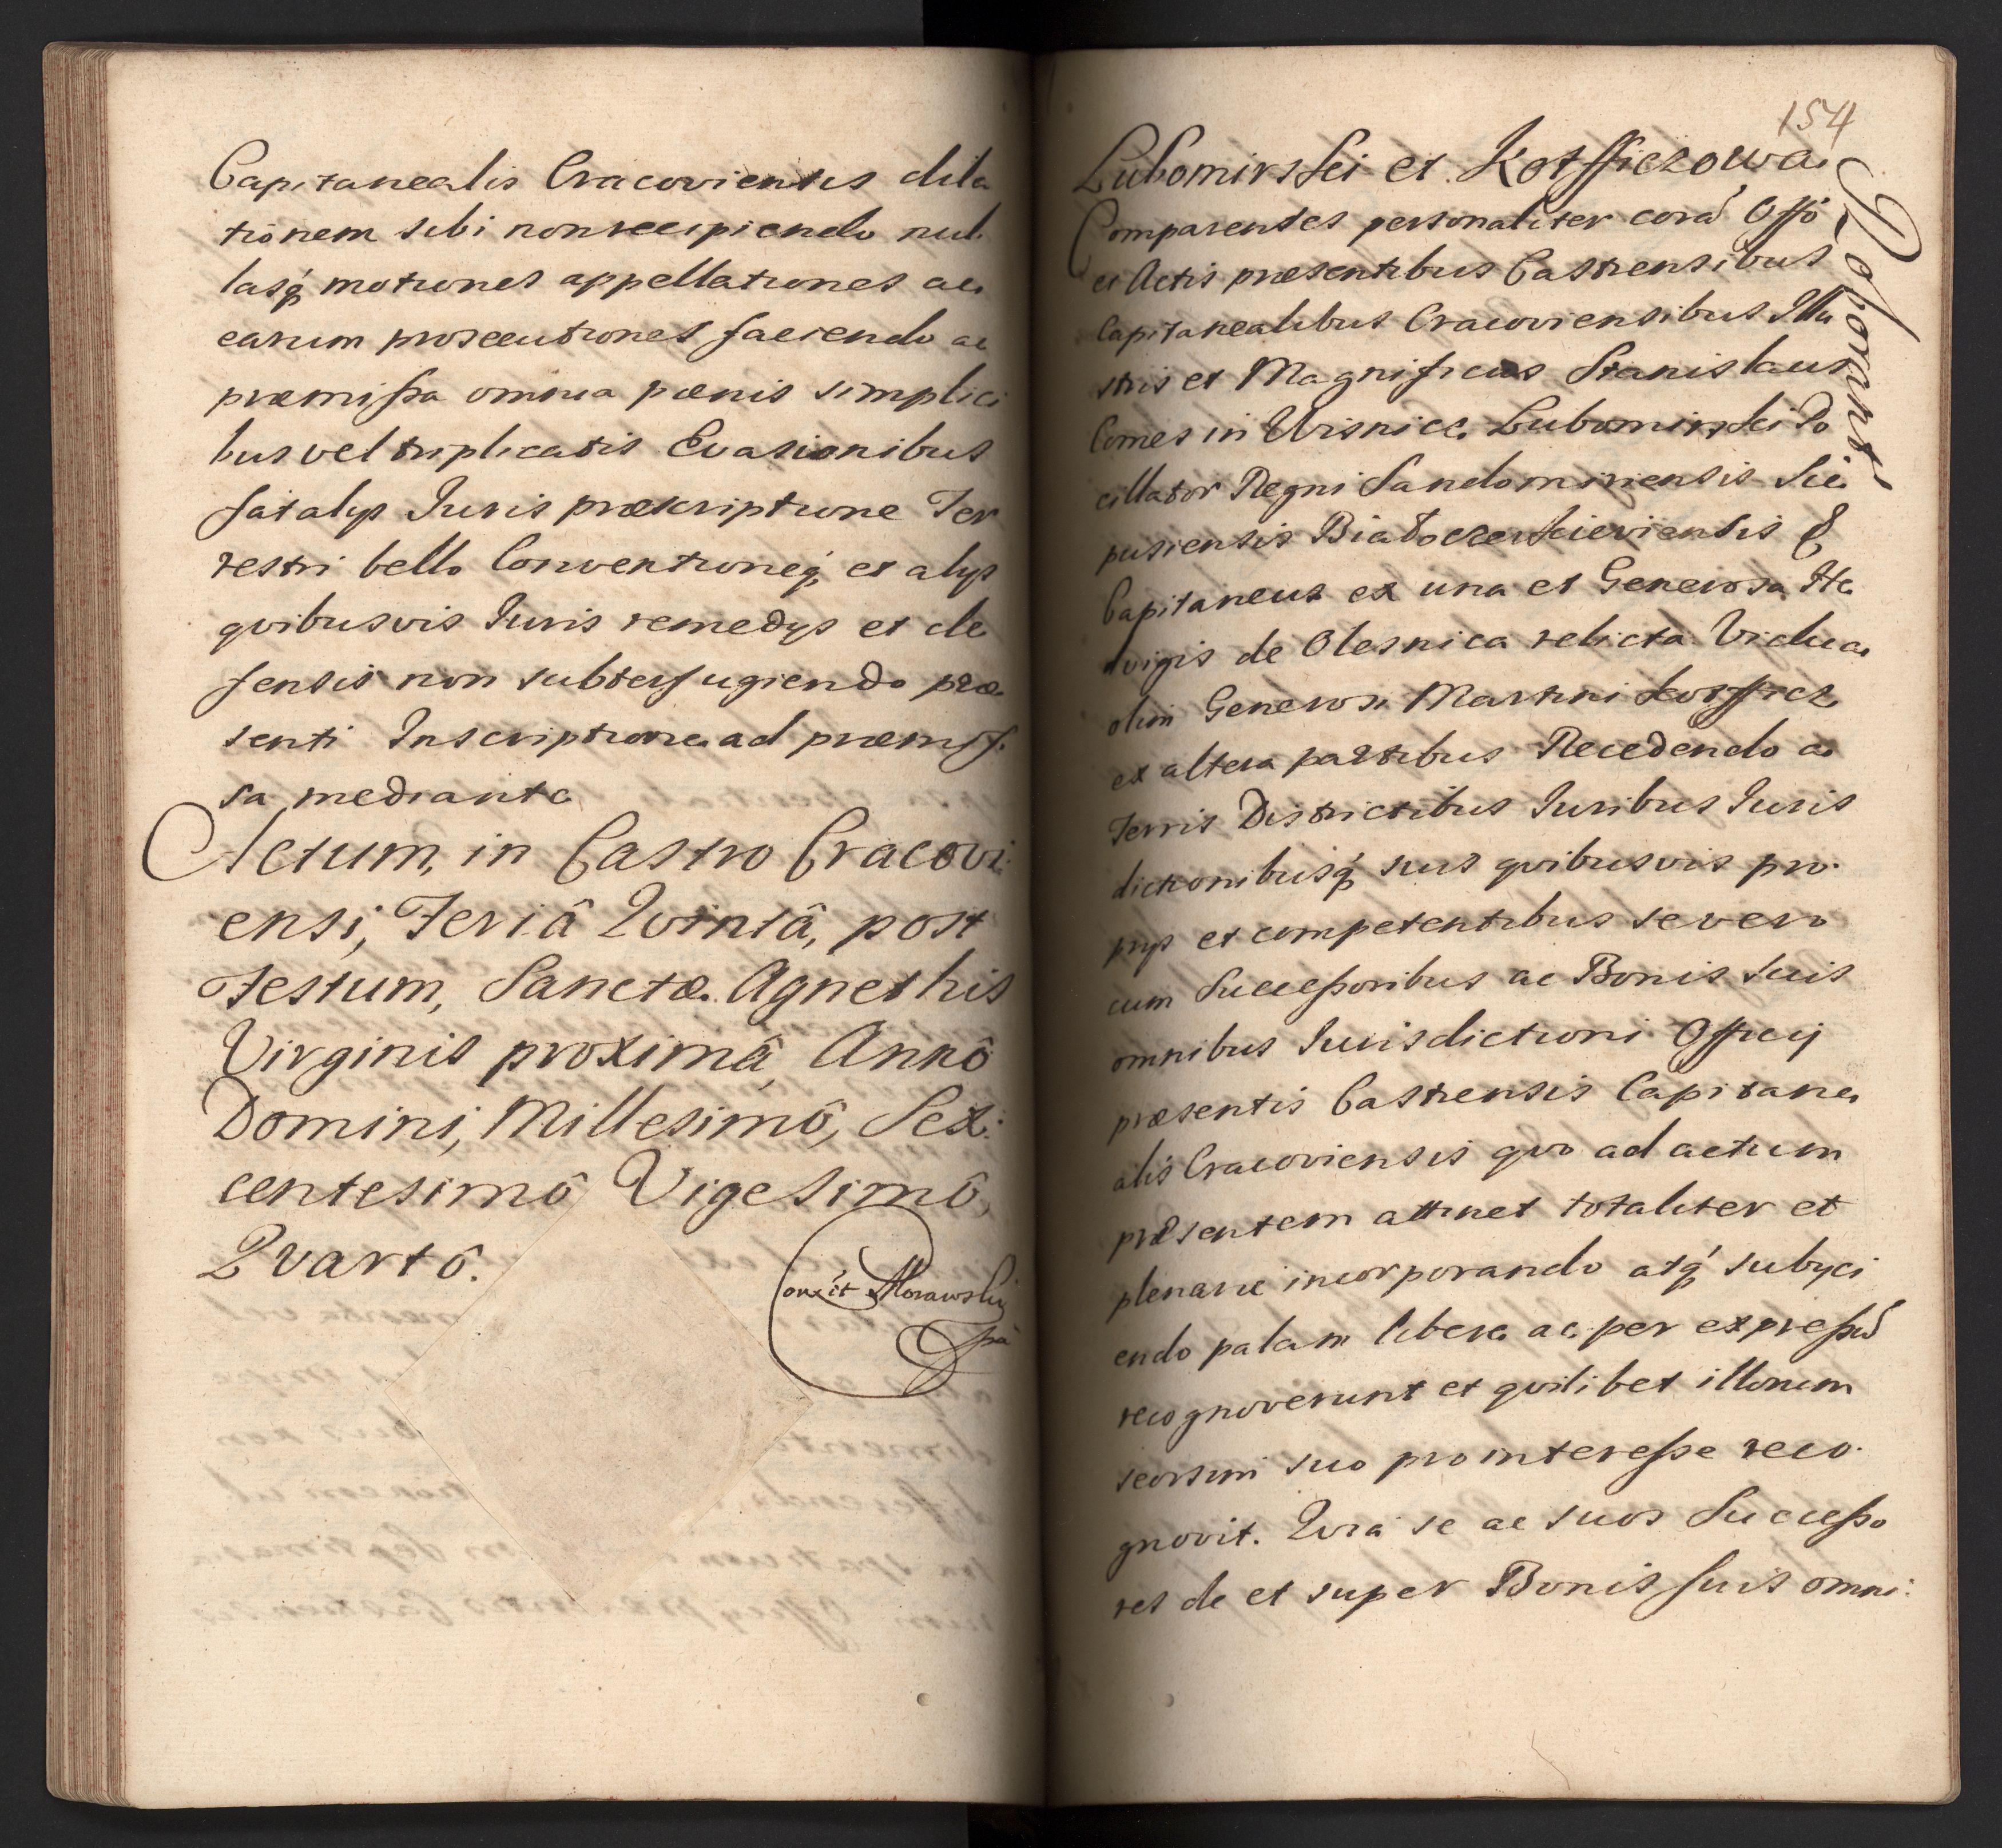 Capitanealis Cracoviensis dila
tionem sibi nonrecipiendo nul
lasq́ motiones appellationes ac
earum prosecutiones faciendo ac
præmißa omnia pœnis simplici
bus vel triplicatis Evasionibus
fatalys Iuris præscriptione Ter
restri bello Conventioneq́ et alys
qvibusvis Iuris remedys et de
fensis non subterfugiendo præ
senti Inscriptione ad præmis
sa mediante
Actum, in Castro Cracovi
ensi, Feriâ Qvintâ, post
Festum, Sanctæ Agnethis
Virginis proximâ, Annô
Domini, Millesimô, Sex:
centesimô Vigesimô,
Qvartô.
Conx̃it Morawski
154
Lubomirski et Kotfficzowa
Roborant
Comparentes personaliter corã Offõ
et Actis præsentibus Castrensibus
Capitanealibus Cracoviensibus Illu
stris et Magnificus Stanislaus
Comes in Wisnicz Lubomirski Po
cillator Regni Sandomiriensis Sce
pusiensis Białocerkieviensis &
Capitaneus ex una et Generosa He
dvigis de Olesnica relicta Vidua
olim Generosi Martini Kotfficz
ex altera partibus Recedendo a
Terris Districtibus Iuribus Iuris
dictionibusq́ suis qvibusvis pro
prys et competentibus se vero
cum Succeßoribus ac Bonis suis
omnibus Iurisdictioni Officij
præsentis Castrensis Capitane
alis Cracoviensis qvo ad actum
præsentem attinet totaliter et
plenarie incorporando atq́ subyci
endo palam libere ac per expreßũ
recognoverunt et qvilibet illorum
seorsim suo prointereße reco
gnovit. Qvia se ac suos Succeßo
res de et super Bonis suis omni: